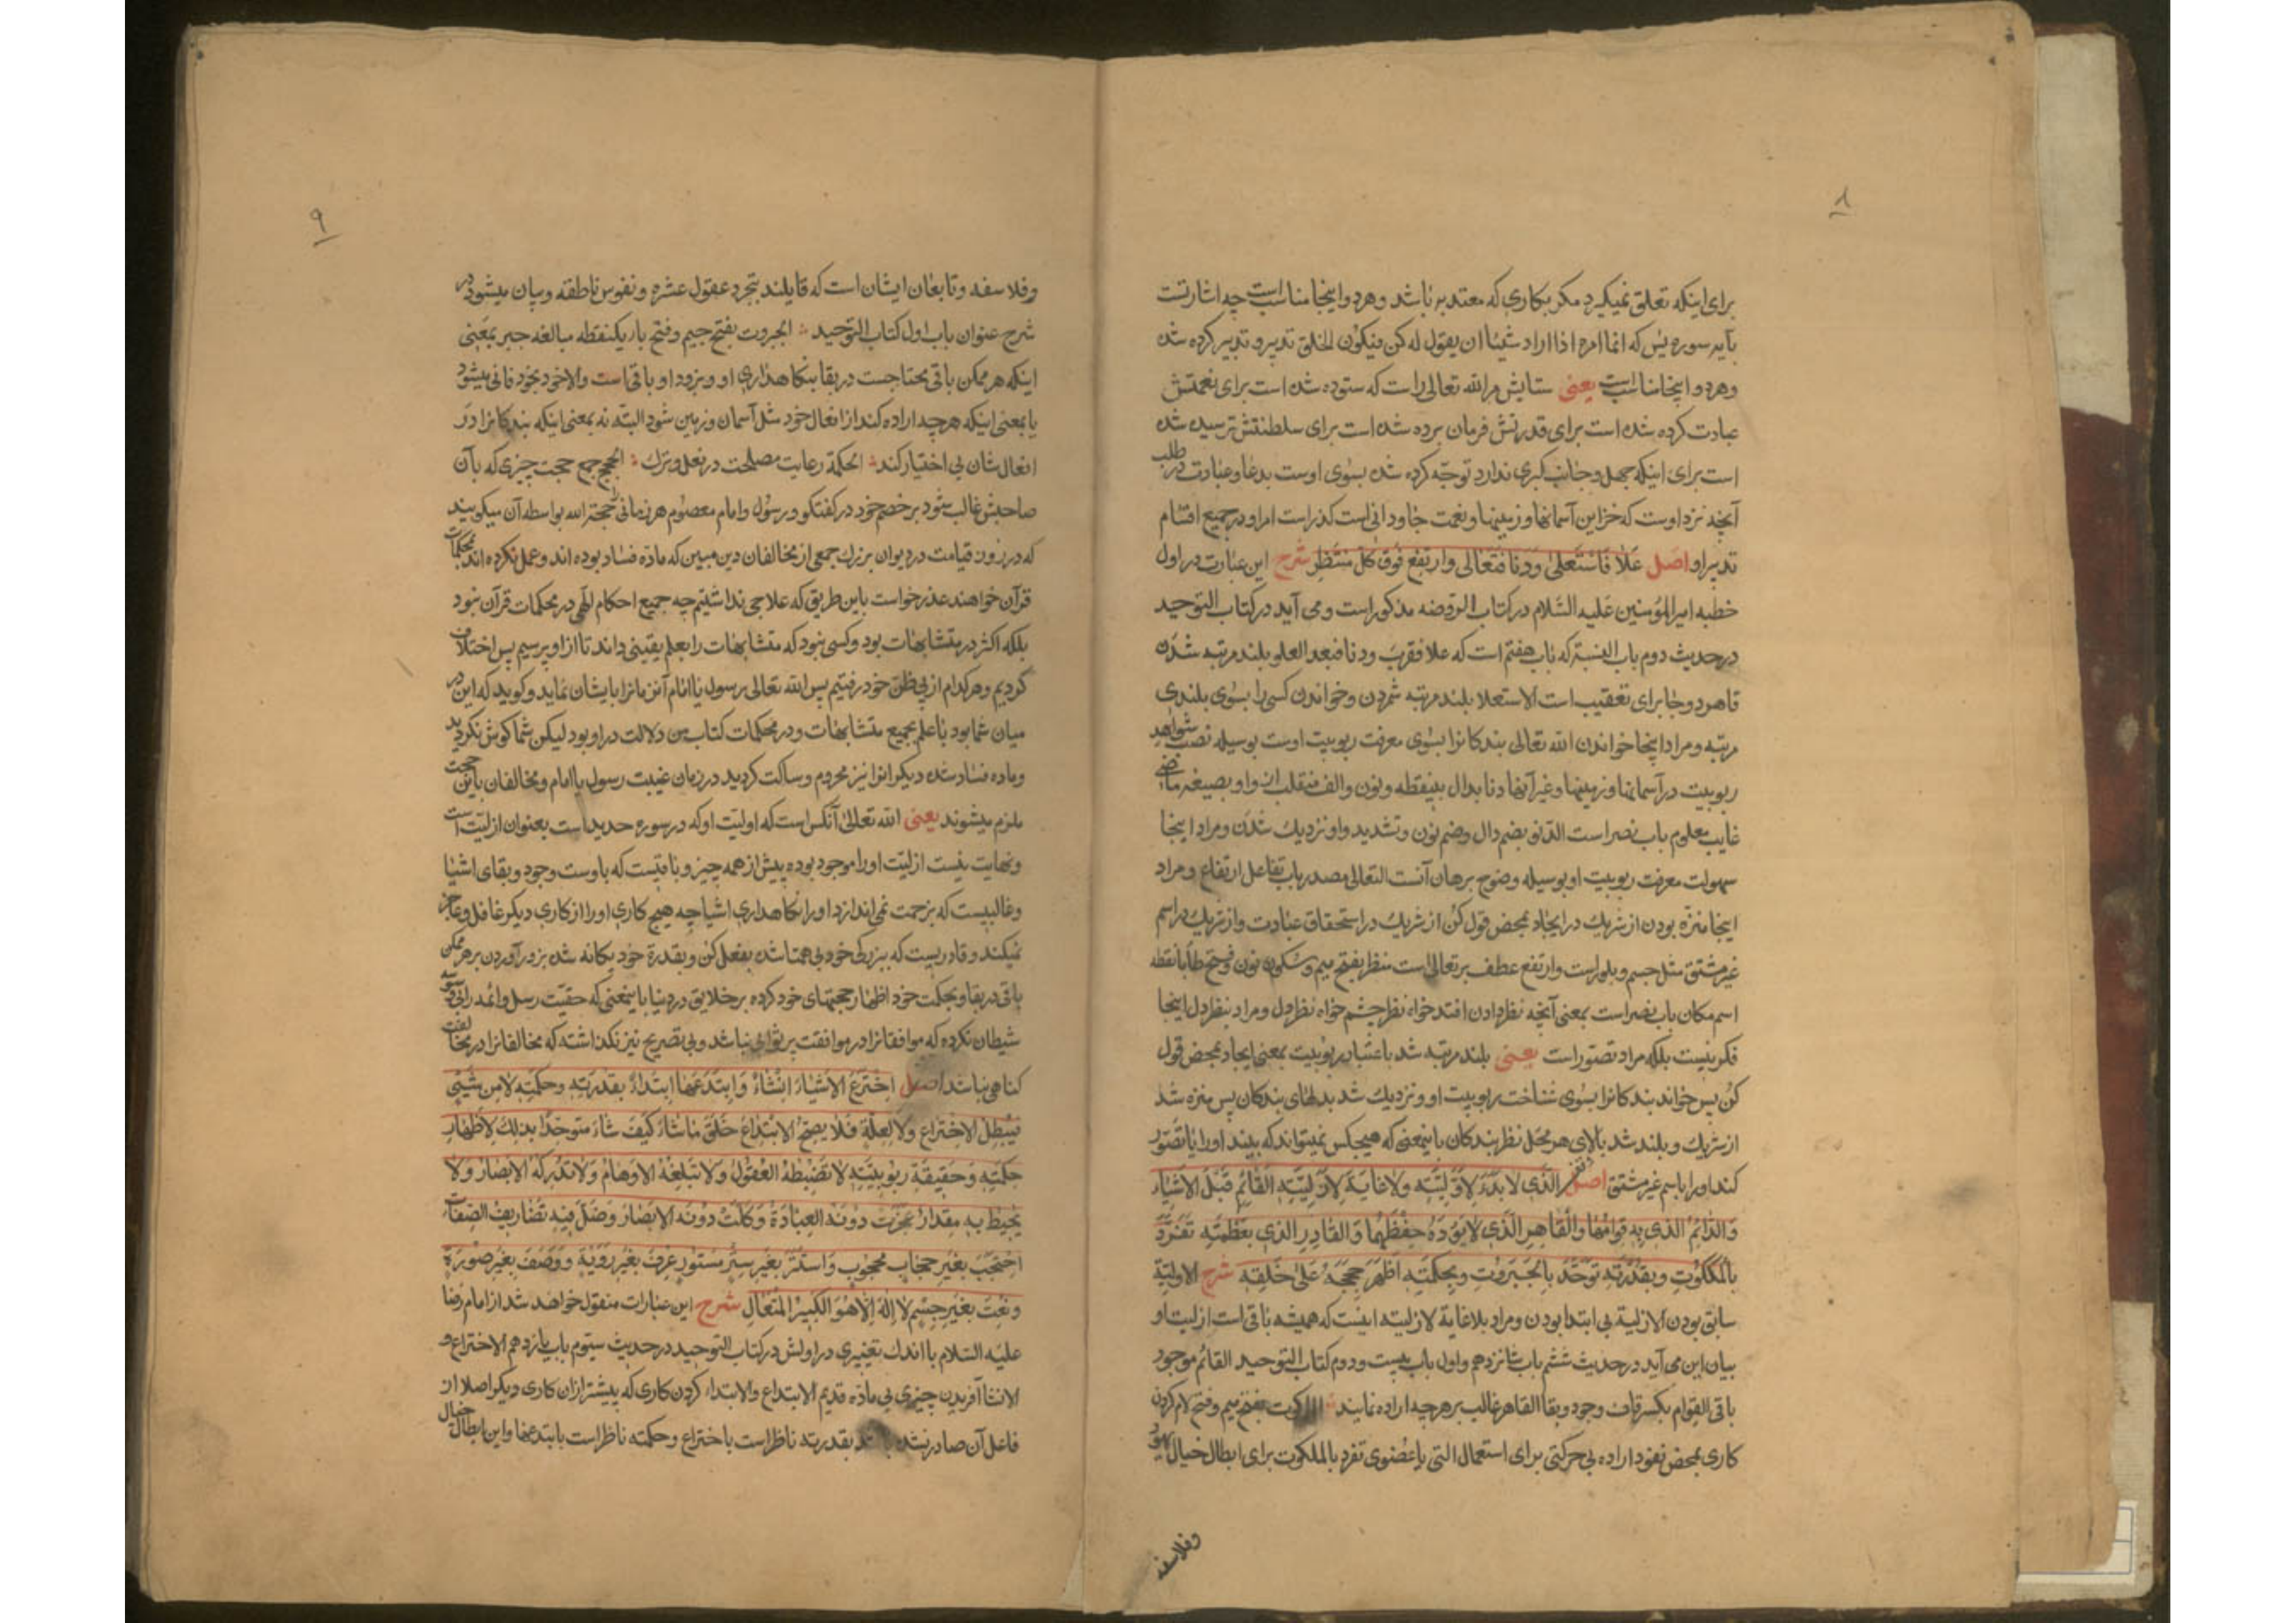 ۸
برای اینکه تعلق نمیکیرد مکر بکاری که معتد به باشد وهر دو اینجا مناسب است چه اشارتست
بآیه سوره یس که انما امره اذا اراد شیئا ان یقول له کن فیکون الخلق تدبیر و تدبیر کرده شده
وهر دو اینجا مناسب است یعنی ستایش مر الله تعالی راست که ستوده شده است برای نعمتش
عبادت کرده شده است برای قدرتش فرمان برده شده است برای سلطنتش ترسیده شده
است برای اینکه جهل وجانب کبری ندارد توجّه کرده شده بسوی اوست بدعا وعبادت در طلب
آنچه نزد اوست که خزاین آسمانها وزمینها ونعمت جاودانی است کذراست امر او در جمیع اقسام
تدبیر او اصل عَلَا فَاسْتَعلیٰ وَدَنا فَتَعَالی وارتفع فَوقَ کلّ منتَظِرٍ شرح این عبارت در اول
خطبه امیر المؤمنین علیه السّلام در کتاب الروضه مذکور است ومی آید در کتاب التوحید
در حدیث دوم باب النسبة که باب هفتم است که علا فقرب ودنا فبعد العلو بلند مرتبه شدن
قاهر دو جا برای تعقیب است الاستعلا بلند مرتبه شمردن وخواندن کسی را بسوی بلندی
مرتبه ومراد اینجا خواندن الله تعالی بندکانرا بسوی معرفت ربوبیت اوست بوسیله نصب شواهد
ربوبیت در آسمانها وزمینها وغیر آنها دنا بدال بینقطه ونون والف منقلب از واو بصیغه ماضی
غایب معلوم باب نصر است الدّنو بضم دال وضم نون وتشدید واو نزدیك شدن ومراد اینجا
سهولت معرفت ربوبیت او بوسیله وضوح برهان آنست التعالی مصدر باب تفاعل ارتفاع ومراد
اینجا منزّه بودن از شریك در ایجاد بمحض قول کن از شریك در استحقاق عبادت واز شریك در اسم
غیر مشتق مثل جسم وبلور است وارتفع عطف بر تعالی است منظر بفتح میم وسکون نون وفتح ظا بانقطه
اسم مکان باب نصر است بمعنی آنچه نظر در ان افتد خواه نظر چشم خواه نظر دل ومراد بنظر دل اینجا
فکر نیست بلکه مراد تصوّر است یعنی بلند مرتبه شد باعتبار ربوبیت بمعنی ایجاد بمحض قول
کُن پس خواند بندکانرا بسوی شناخت ربوبیت او ونزدیك شد بدلهای بندکان پس منزه شد
از شریك وبلند شد بالای هر محل نظر بندکان باینمعنی که هیچکس نمیتواند که بیند او را یا تصوّر
کند او را باسم غیر مشتق اصل الَّذی لا بَدْءَ لِاَوَّلیَّتِه وَلا غایَةَ لِاَزَلیَّتِهِ القَائِمِ قَبْلَ الاَشْیَاء
وَالدّائِمُ الذی بِهِ قِوَامُهَا وَالقَاهِرِ الَّذی لا یَؤدُهُ حِفْظُهَا وَالقَادِرِ الذی بعَظَمَتِه تَفَرَّدَ
بالمَلَکُوتِ وبِقُدْرَتِهِ تَوَحَّدَ بِالجَبَرُوتِ وبِحِکمَتِه اَظْهَرَ حُجَجَهُ عَلیٰ خَلْقِهِ شرح الاولیّة
سابق بودن الازلیة بی ابتدا بودن ومراد بلا غایة لازلیته اینست که همیشه باقی است ازلیت او
بیان این می آید در حدیث ششم باب شانزدهم واول باب بیست ودوم کتاب التوحید القائم موجود
باقی القِوام بکسر قاف وجود وبقا القاهر غالب بر هر چه اراده نماید الملکوت بفتح میم وفتح لام کردن
کاری بمحض نفوذ اراده بی حرکتی برای استعمال التی یا عضوی تفرد بالملکوت برای ابطال خیال یهود
وفلاسفه
۹
وفلاسفه وتابعان ایشان است که قایلند بتجرد عقول عشره ونفوس ناطقه وبیان میشود در
شرح عنوان باب اول کتاب التوحید الجبروت بفتح جیم وفتح باء یکنقطه مبالغه جبر بمعنی
اینکه هر ممکن باقی محتاجست در بقا بنکاهداری او وبزور او باقی است والا خود بخود فانی میشود
یا بمعنی اینکه هر چه اراده کند از افعال خود مثل آسمان وزمین شود البتّه نه بمعنی اینکه بندکانرا در
افعال شان بی اختیار کند الحکمة رعایت مصلحت در فعل وترك الحجج جمع حجت چیزی که بآن
صاحبش غالب شود بر خصم خود در کفتکو ورسُول وامام معصوم هر زمانی حجة الله بواسطه آن میکویند
که در روز قیامت در دیوان بزرك جمعی از مخالفان دین مبین که ماده فساد بوده اند وعمل نکرده اند بمحکمات
قرآن خواهند عذر خواست باین طریق که علاجی نداشتیم چه جمیع احکام الهی در محکمات قرآن نبود
بلکه اکثر در متشابهات بود وکسی نبود که متشابهات را بعلم یقینی داند تا از او پرسیم پس اختلاف
کردیم وهر کدام از پی ظن خود رفتیم پس الله تعالی رسول یا امام آنزمانرا بایشان نماید وکوید که این در
میان شما بود با علم بجمیع متشابهات ودر محکمات کتاب من دلالت در او بود لیکن شما کوش نکردید
وماده فساد شده دیکرانرا نیز محروم وساکت کردید در زمان غیبت رسول یا امام ومخالفان باین حجت
ملزم میشوند یعنی الله تعالیٰ آنکس است که اولیّت او که در سوره حدید است بعنوان ازلیّت است
ونهایت نیست ازلیّت او را موجود بوده پیش از همه چیز وباقیست که باوست وجود وبقای اشیا
وغالبیست که بزحمت نمی اندازد او را نکاهداری اشیا چه هیچ کاری او را از کاری دیکر غافل وعاجز
نمیکند وقادریست که ببزرکی خود بی همتا شده بفعل کن وبقدرة خود یکانه شده بزور آوردن بر هر ممکن
باقی در بقا وبحکمت خود اظهار حجتهای خود کرده بر خلایق در دنیا باینمعنی که حقیّت رسل وائمه را بی
شیطان نکرده که موافقانرا در موافقت بر ثوابی نباشد وبی تصریح نیز نکذاشته که مخالفانرا در مخالفت
کناهی نباشد اصل اِخْتَرَعَ الاَشْیَاءَ اِنْشَاءً وَابتَدَعَهَا ابتِدَاءً بقدرَتِهِ وحِکمَتِهِ لا مِن شَیْءٍ
فیَبْطُلَ الاِخْتِراع وَلا لِعِلَّةٍ فَلا یَصِحُّ الابْتِدَاعُ خَلَقَ مَا شَاءَ کَیْفَ شَاءَ متوحّدًا بذلِكَ لاِظْهَارِ
حِکْمَتِهِ وَحَقیقَةِ رُبُوبیَّتِهِ لا تَضْبِطُهُ العُقُولُ وَلا تَبْلُغُهُ الاَوهَامُ وَلا تُدْرِکُهُ الابْصَارُ وَلا
یُحیطُ بِهِ مِقْدَارٌ عَجَزَت دُونَه العِبَارَةُ وَکَلَّتْ دُونَه الابْصَارُ وَضَلَّ فیهِ تَصَاریفُ الصِّفَات
اِحْتَجَبَ بغَیْرِ حِجَابٍ مَحجُوبٍ وَاسْتَتَرَ بِغَیْرِ سِتْرٍ مَسْتُورٍ عُرِفَ بغَیرِ رُؤیَةٍ وَوُصِفَ بغَیْرِ صُورَةٍ
ونُعِتَ بغَیْرِ جِسْمٍ لا اِلٰهَ اِلّا هُوَ الکَبیرُ المُتَعَالِ شرح این عبارات منقول خواهد شد از امام رضا
علیه السّلام با اندك تغییری در اولش در کتاب التوحید در حدیث سیّوم باب یازدهم الاختراع و
الانشا آفریدن چیزی بی مادّه قدیم الابتداع والابتداء کردن کاری که پیشتر از ان کاری دیکر اصلا از
فاعل آن صادر نشده باشد بقدرته ناظر است باختراع وحکمته ناظر است بابتدعها واین ابطال خیال